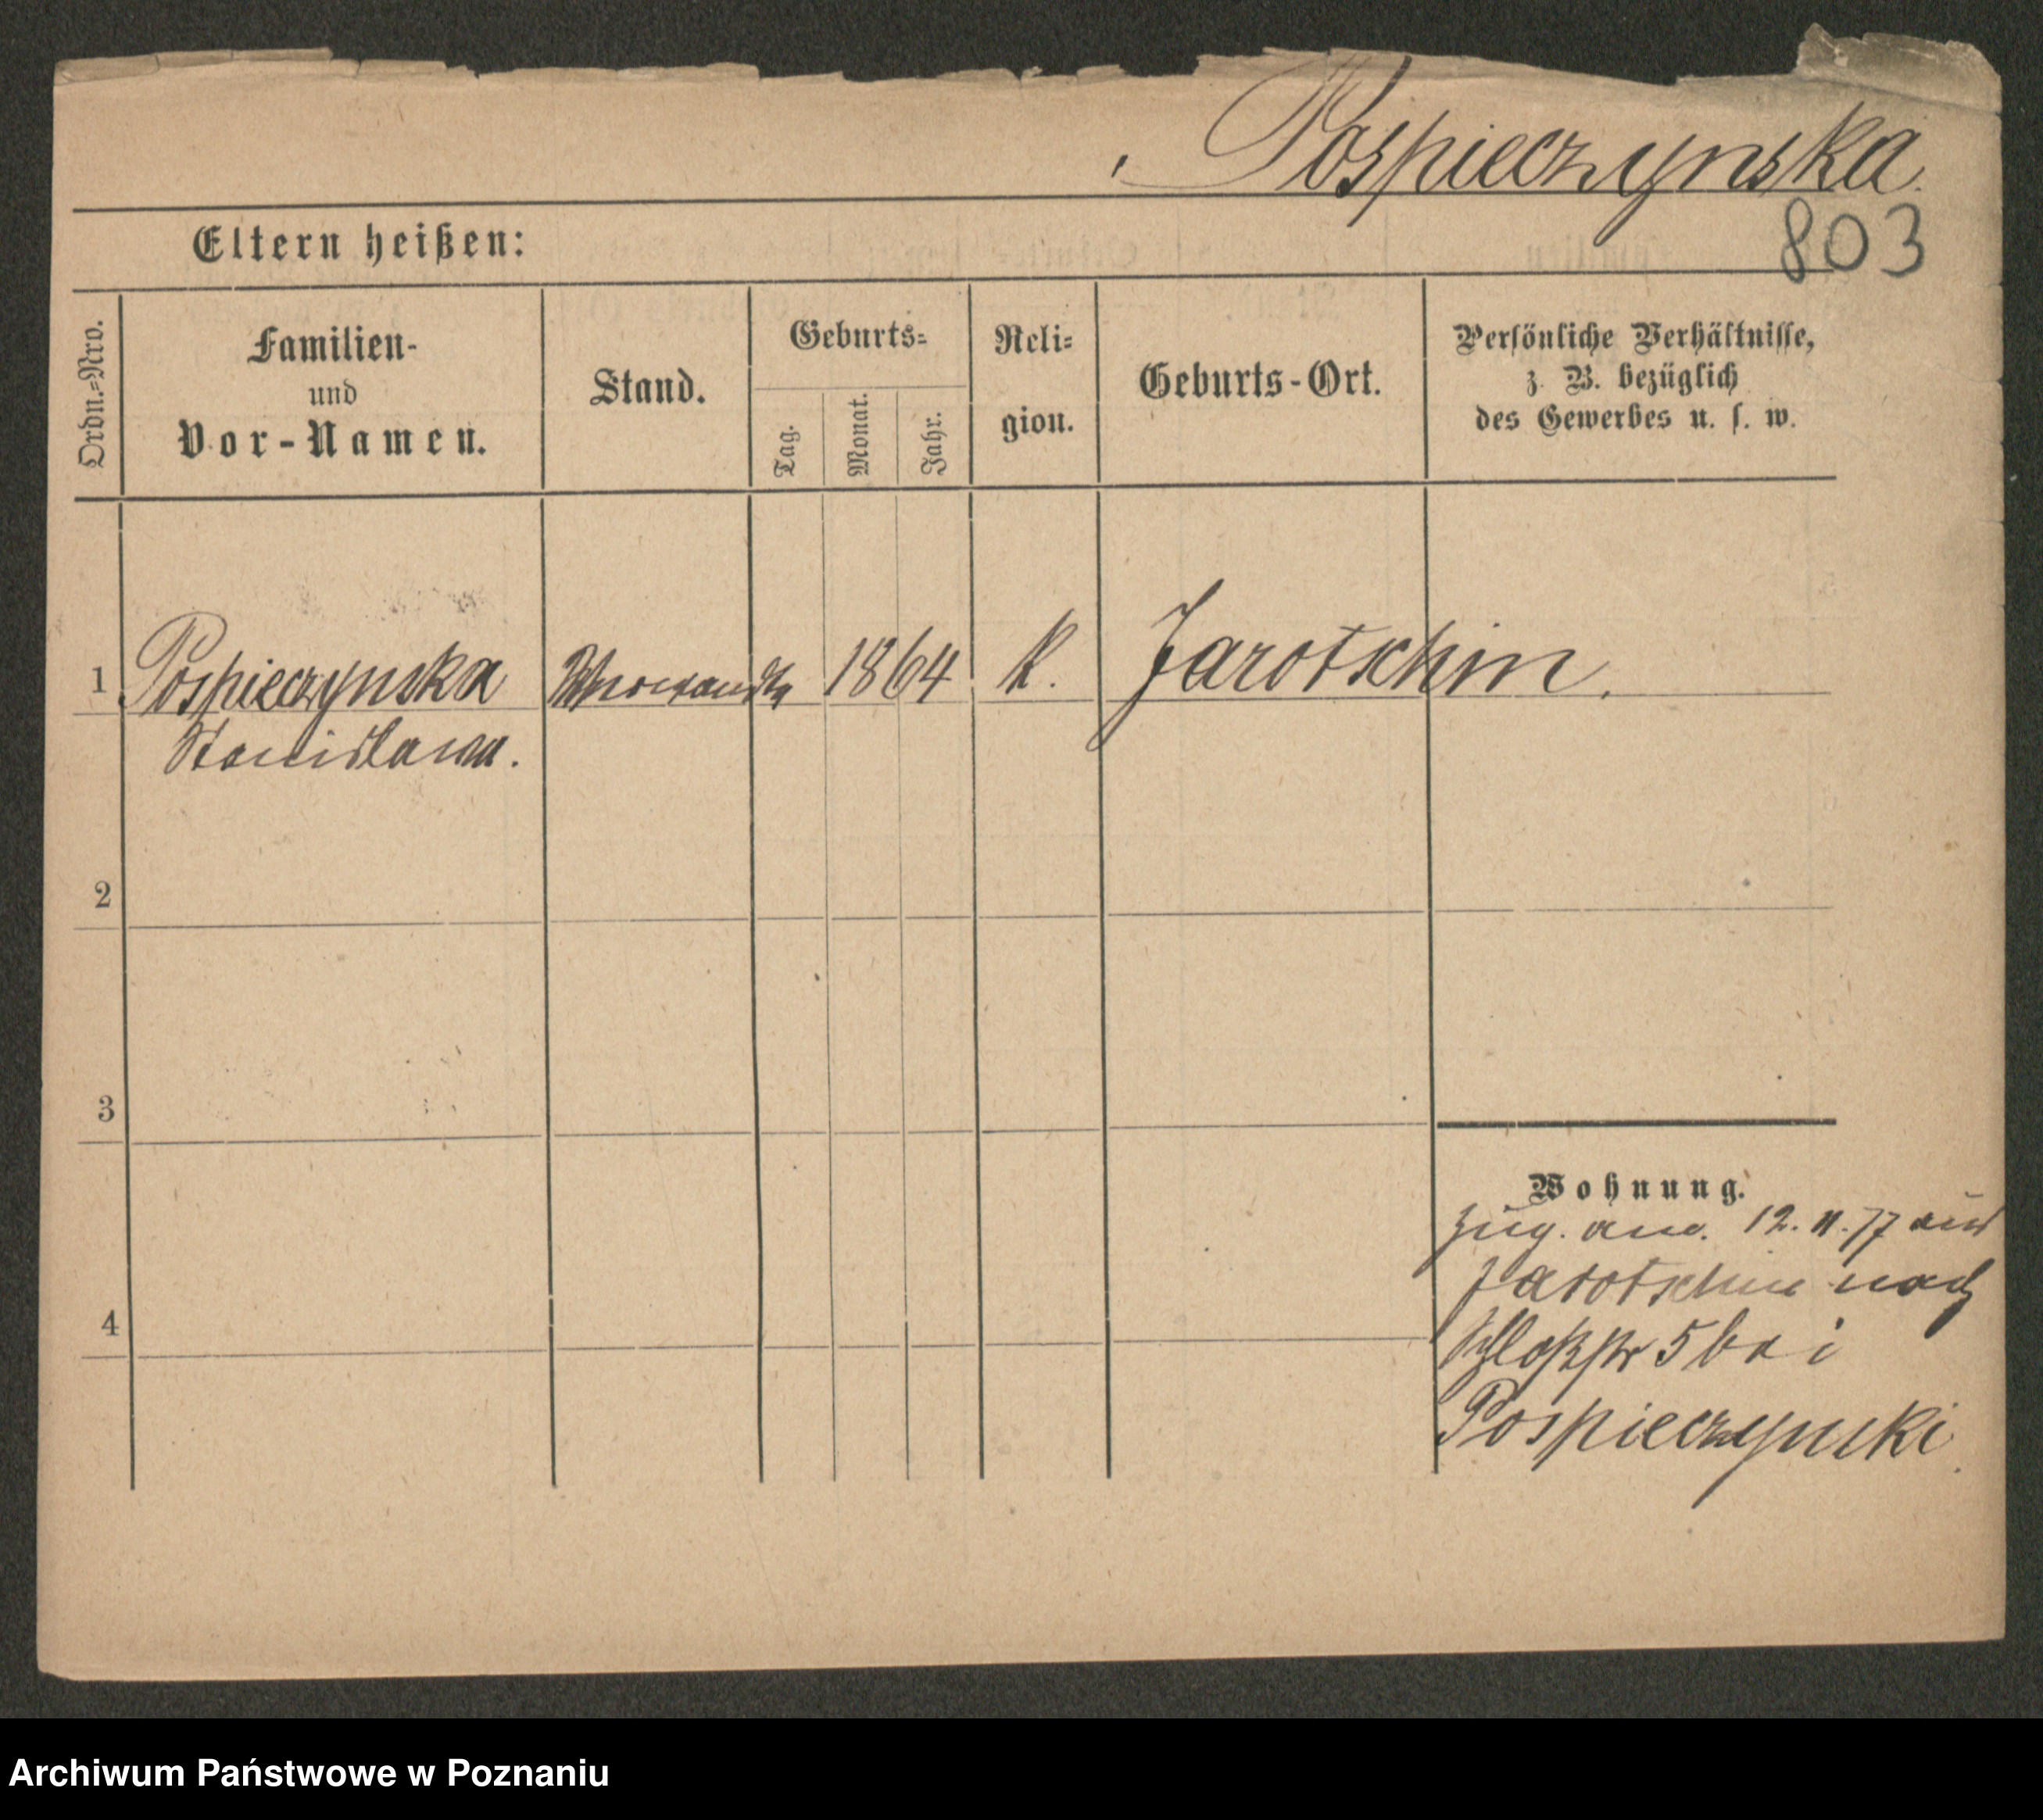 Pospieczynska
803
Eltern heißen:
Ordn.=Nro.
Familien-
und
Vor-Namen.
Stand.
Geburts=
Tag.
Monat.
Jahr.
Reli=
gion.
Geburts-Ort.
Persönliche Verhältnisse,
z. B. bezüglich
des Gewerbes u. s. w.
1 Pospieczynska 1864 k. Jarotschin.
Stanislawa.
2
3
4
Wohnung.
Zug. am. 12. 11. 77 aus
Jarotschin nach
Schloßstr 5 bei
Pospieczynski
Archiwum Państwowe w Poznaniu